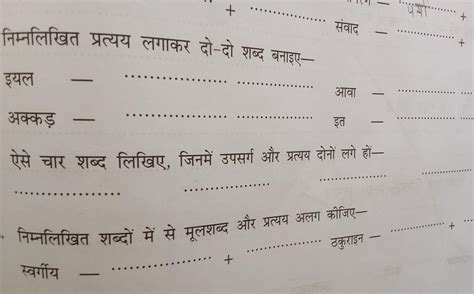 +
संवाद — +
निम्नलिखित प्रत्यय लगाकर दो-दो शब्द बनाइए—
इयल — आवा —
अक्कड़ — इत —
ऐसे चार शब्द लिखिए, जिनमें उपसर्ग और प्रत्यय दोनों लगे हों—
निम्नलिखित शब्दों में से मूलशब्द और प्रत्यय अलग कीजिए—
स्वर्गीय — + ठकुराइन — +